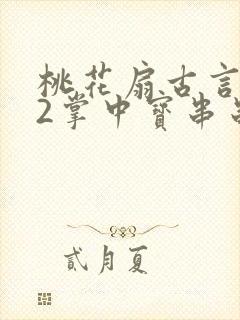 桃花扇古言
2掌中寳串
貳月夏